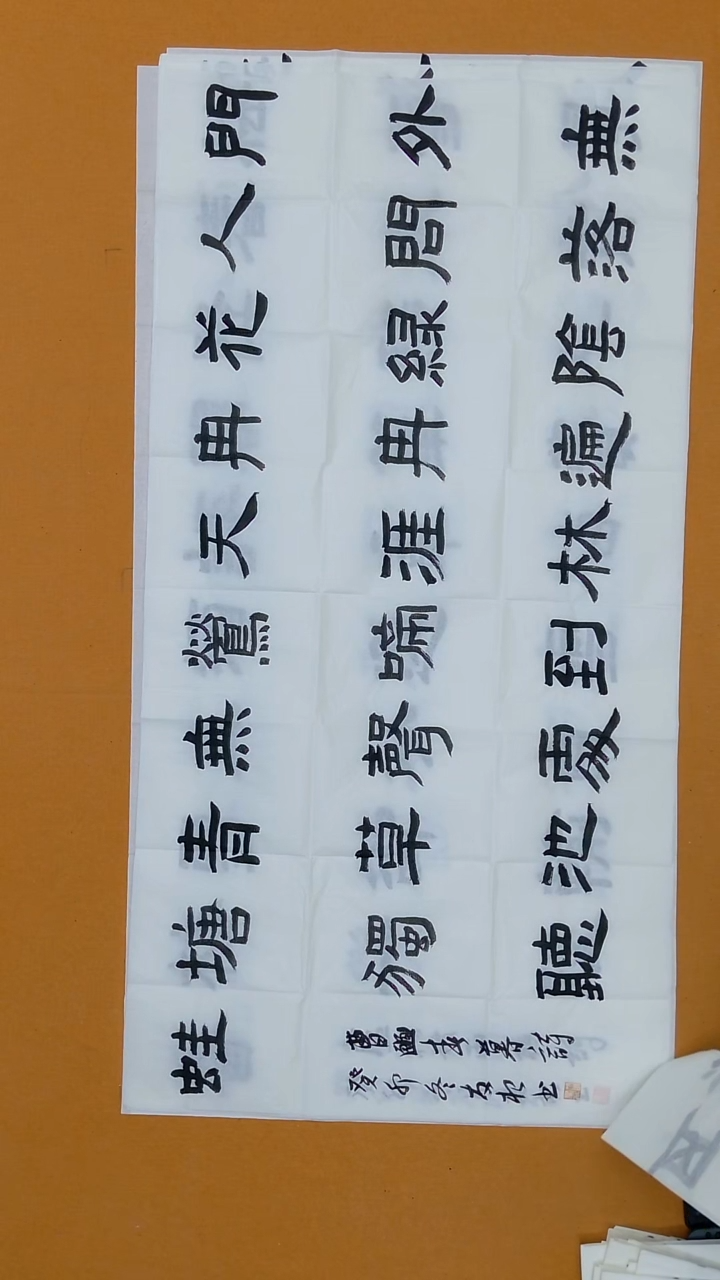 門外無
人問落
花綠陰
冉冉遍
天涯林
鶯啼到
無聲處
青草池
塘獨聽
蛙
曹豳春暮詩
癸卯冬 书